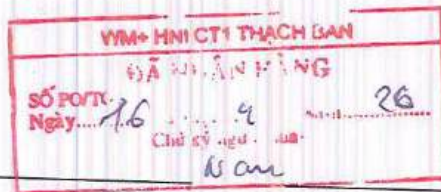 WM+ HNI CT1 THẠCH BAN
ĐÃ NHẬN HÀNG
SỐ PO/TC
Ngày....16 4 26
Chữ ký
Nam